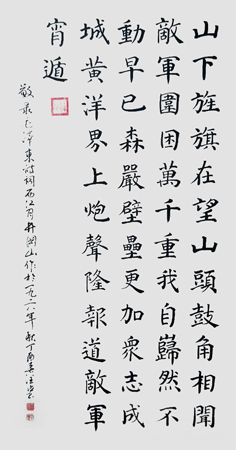 山下旌旗在望山頭鼓角相聞
敵軍圍困萬千重我自歸然不
動早已森嚴壁壘更加衆志成
城黃洋界上炮聲隆報道敵軍
宵遁
敬录毛澤東詩词西江月井岡山作於一九二八年秋丁酉